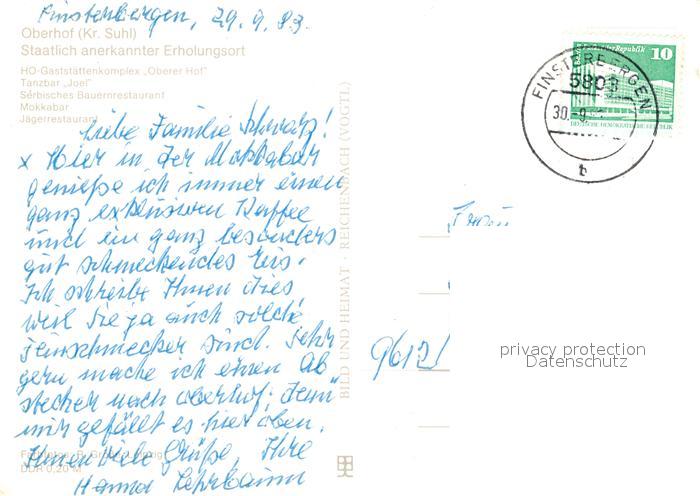 Finsterbergen, 29.9.83.
Oberhof (Kr. Suhl)
Staatlich anerkannter Erholungsort
HO-Gaststättenkomplex „Oberer Hof"
Tanzbar „Joel"
Serbisches Bauernrestaurant
Mokkabar
Jägerrestaurant
Liebe Familie Schwarz!
x Hier in der Mokkabar
genieße ich immer einen
ganz exklusiven Kaffee
und ein ganz besonders
gut schmeckendes Eis.
Ich schreibe Ihnen dies,
weil Sie ja auch solche
Feinschmecker sind. Sehr
gern mache ich einen Ab
stecher nach Oberhof. Denn
mir gefällt es hier oben.
Ihnen viele Grüße, Ihre
Hanna Lehrbaum
DDR 0,20 M
BILD UND HEIMAT · REICHENBACH (VOGTL)
10
DEUTSCHE DEMOKRATISCHE REPUBLIK
FINSTERBERGEN
5803
30.-9.
b
Frau
9612
privacy protection
Datenschutz